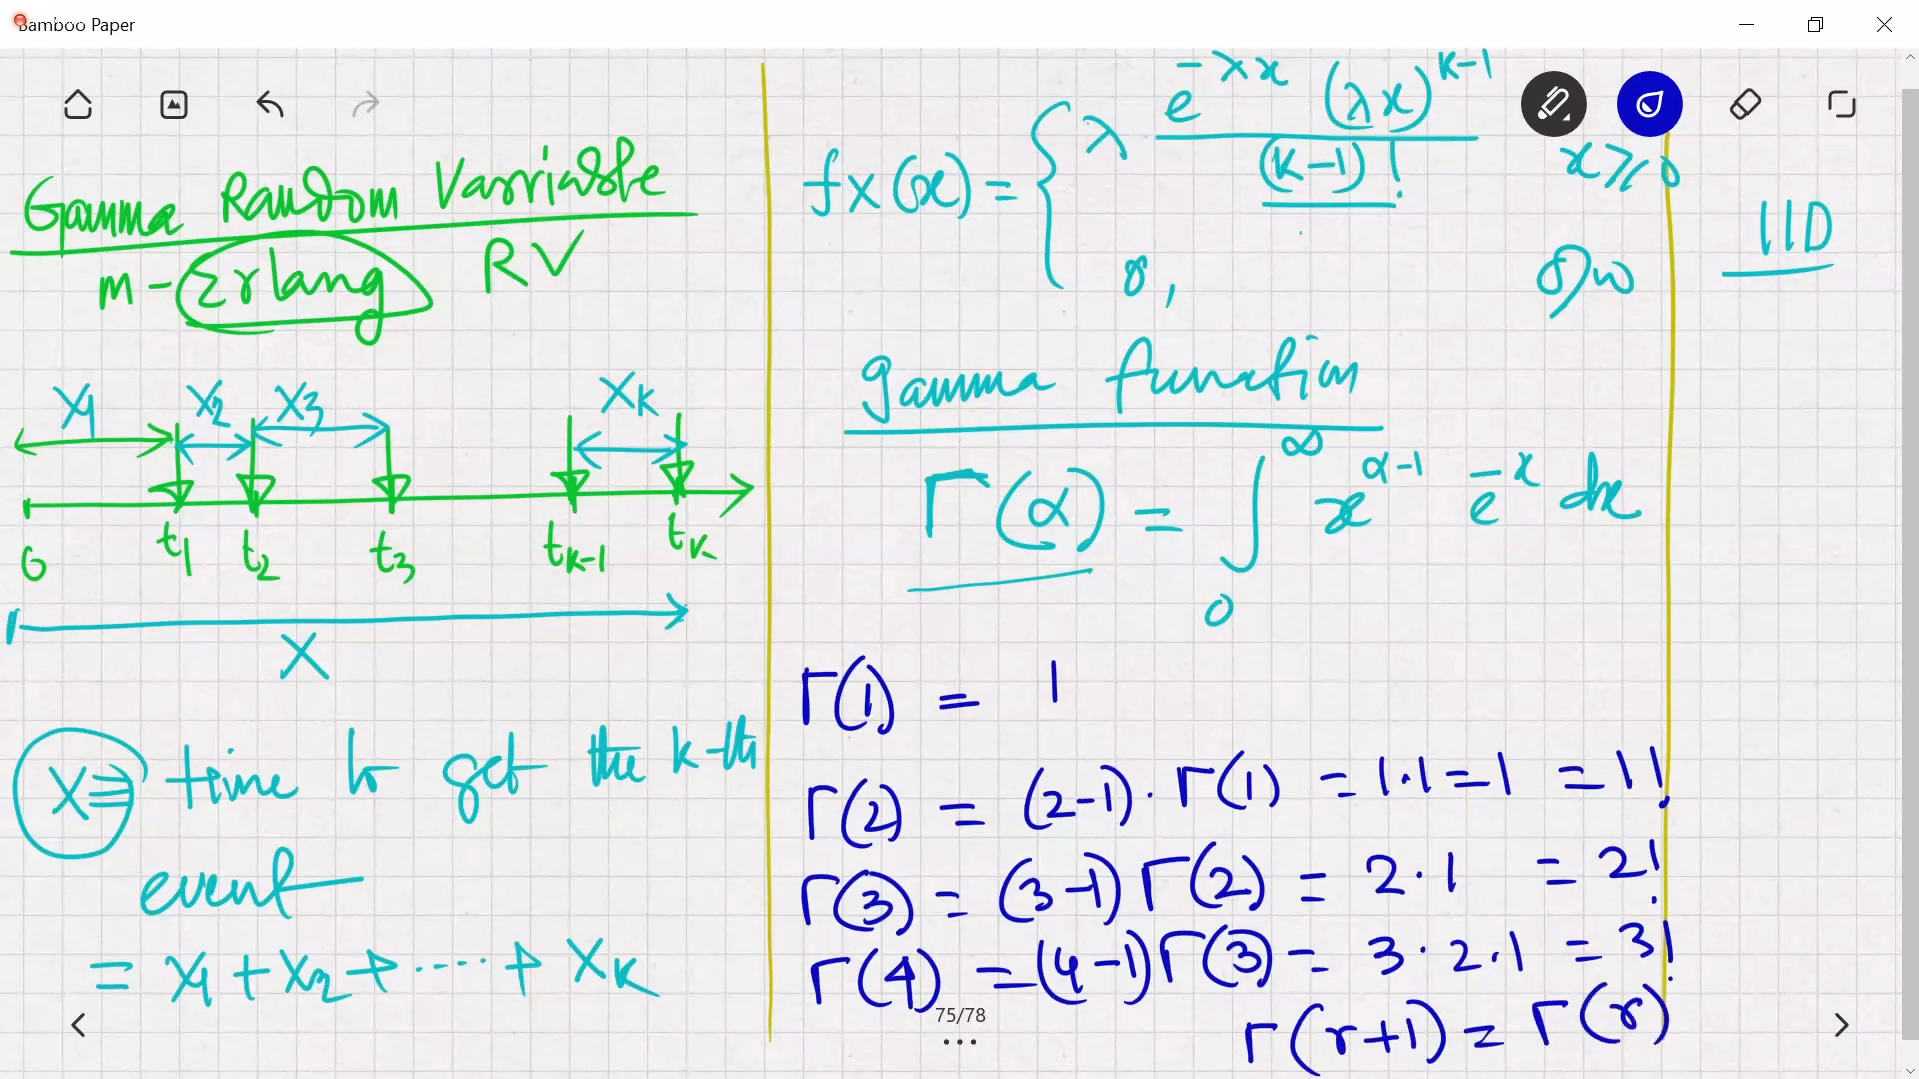 Bamboo Paper
Gamma Random Variable
m-Erlang RV
X1 X2 X3 Xk
0 t1 t2 t3 tk-1 tk
X
X ≡ time to get the k-th
event
= X1 + X2 + ..... + Xk
fX(x) = { λ e^-λx (λx)^k-1 / (k-1)! x ≥ 0
0, o/w
gamma function
Γ(α) = ∫ 0 ∞ x^α-1 e^-x dx
Γ(1) = 1
Γ(2) = (2-1) · Γ(1) = 1·1 = 1 = 1!
Γ(3) = (3-1) Γ(2) = 2·1 = 2!
Γ(4) = (4-1) Γ(3) = 3·2·1 = 3!
Γ(r+1) = Γ(r)
75/78
IID